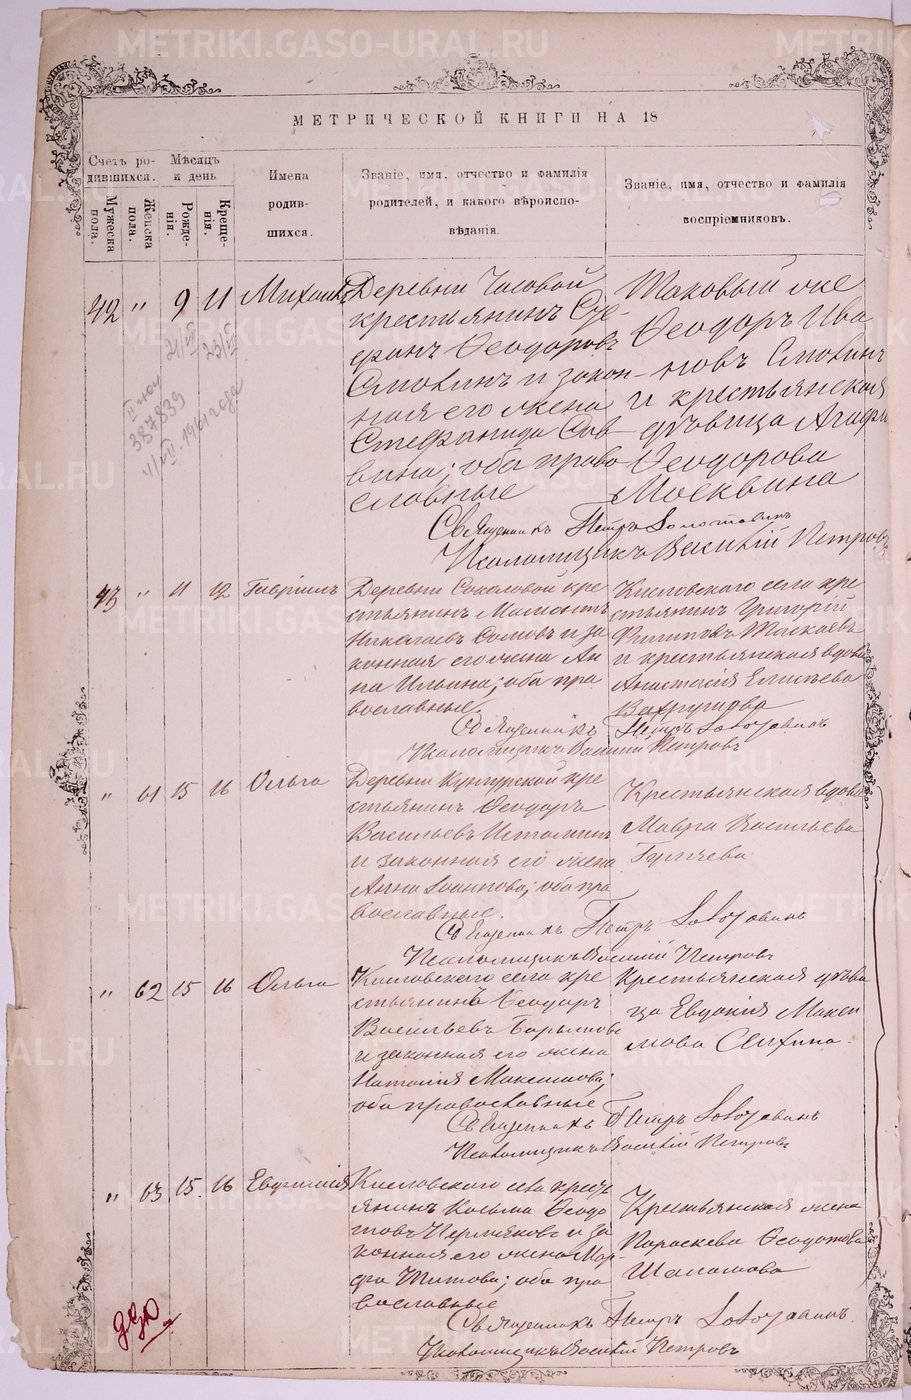 МЕТРИЧЕСКОЙ КНИГИ НА 18
Счетъ ро-
дившихся.
Мѣсяцъ
и день
Мужеска
пола.
Женска
пола.
Рожде-
нія.
Креще-
нія.
Имена
родив-
шихся.
Званіе, имя, отчество и фамилія
родителей, и какого вѣроиспо-
вѣданія.
Званіе, имя, отчество и фамилія
воспріемниковъ.
42 " 9 11 Михаилъ
Деревни Часовой
крестьянинъ Сте-
фанъ Ѳеодоровъ
и закон-
ная его жена
Стефанида Сав-
вина; оба право
славные
Таковый же
Ѳеодоръ Ива
новъ
и крестьянская
дѣвица Агафи
Ѳеодорова
Москвина
21/VII 23/VII
387839
1961 года
Священникъ Петръ Золотавинъ
Псаломщикъ Василій Петровъ
43 " 11 12 Гавріилъ
Деревни Соколовой кре
стьянинъ Мамонтъ
Николаевъ Сомовъ и за
конная его жена Ан
на Ильина; оба пра
вославные
Кисловскаго села кре
стьянинъ Григорій
Филиповъ Таскаевъ
и крестьянская вдова
Анастасія Елисѣева
Вахрушова
Священникъ Петръ Золотавинъ
Псаломщикъ Василій Петровъ
" 61 15 16 Ольга
Деревни Кунгурской кре
стьянинъ Ѳеодоръ
Васильевъ Истоминъ
и законная его жена
Анна Іоаннова; оба пра
вославные.
Крестьянская вдова
Мавра Васильева
Священникъ Петръ Золотавинъ
Псаломщикъ Василій Петровъ
" 62 15 16 Ольга
Кисловскаго села кре
стьянинъ Ѳеодоръ
Васильевъ
и законная его жена
Наталія Максимова;
оба православные
Крестьянская дѣви
ца Евдокія Макси
мова
Священникъ Петръ Золотавинъ
Псаломщикъ Василій Петровъ
" 63 15. 16 Евфимія
Кисловскаго села крест
янинъ Косьма Ѳедо
товъ Пермяковъ и за
конная его жена Мар-
фа Титова; оба пра
вославные
Крестьянская жена
Параскева Ѳеодотова
Шаламова
Священникъ Петръ Золотавинъ
Псаломщикъ Василій Петровъ
METRIKI.GASO-URAL.RU